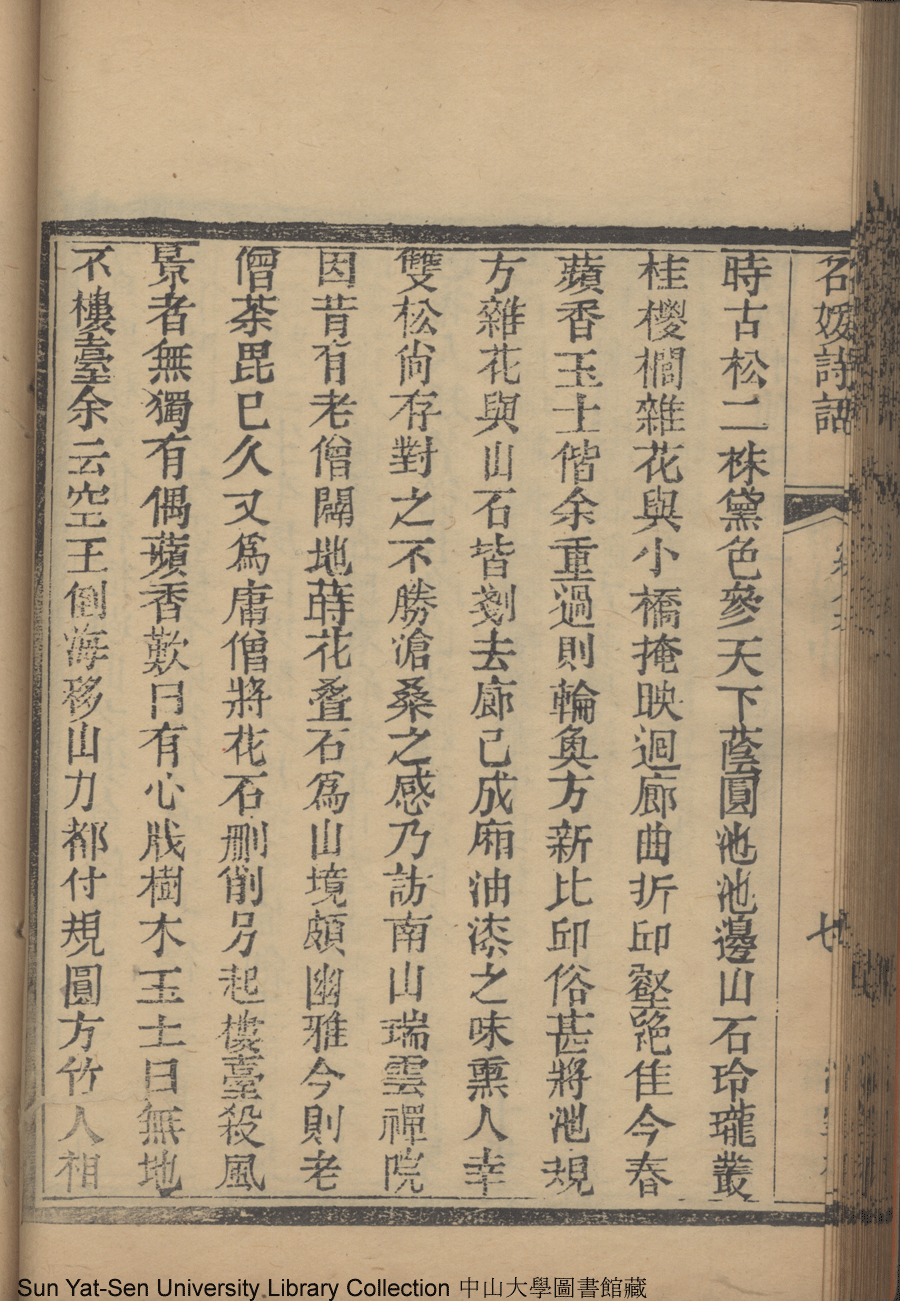 名媛詩話
七
時古松二株黛色參天下蔭圓池池邊山石玲瓏叢
桂椶櫚雜花與小橋掩映迴廊曲折邱壑絕佳今春
蘋香玉士偕余重過則輪奐方新比邱俗甚將池規
方雜花與山石皆剗去廊已成廂油漆之味熏人幸
雙松尙存對之不勝滄桑之感乃訪南山瑞雲禪院
因昔有老僧闢地蒔花叠石爲山境頗幽雅今則老
僧荼毘已久又爲庸僧將花石刪削另起樓臺殺風
景者無獨有偶蘋香歎曰有心戕樹木玉士曰無地
不樓臺余云空王倒海移山力都付規圓方竹人相
Sun Yat-Sen University Library Collection 中山大學圖書館藏